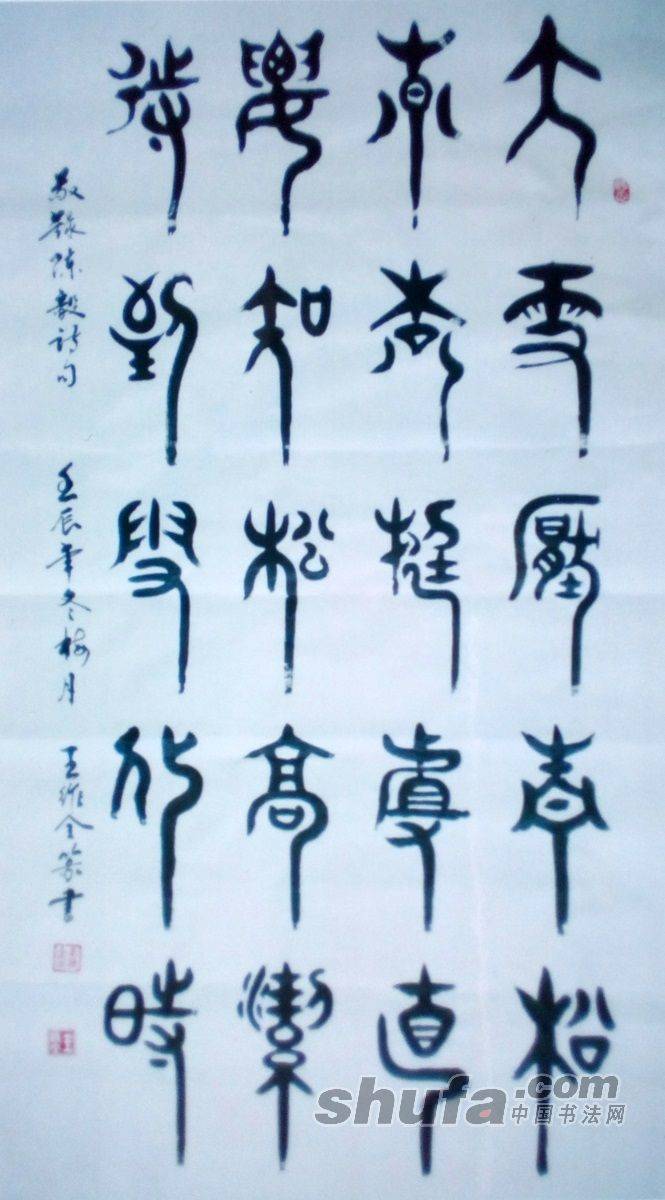 大雪壓青松
青松挺且直
要知松高潔
待到雪化時
敬録陈毅诗句 壬辰年冬梅月 王维全篆书
shufa.com
中国书法网